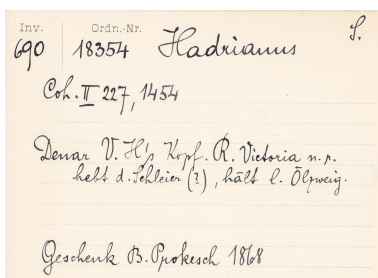 Inv. Ordn.-Nr. S.
690 18354 Hadrianus
Coh. II 227, 1454
Denar V. H's Kopf. R. Victoria n. r.
hebt d. Schleier (?), hält l. Ölzweig.
Geschenk B. Prokesch 1868